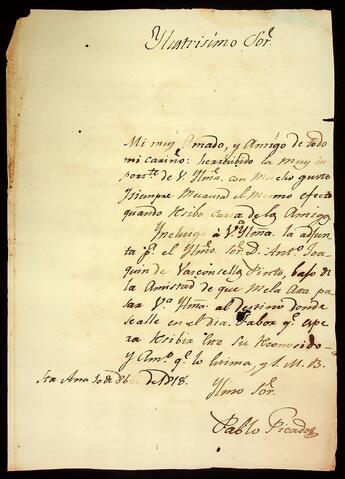 Ylustrisimo Sor.
Mi muy Amado, y Amigo de todo
mi cariño: he recibido la muy im
portte. de V. Ylma. con Mucho gusto
y siempre me causa el mismo efecto
quando Recibo Carta de los Amigos
Yncluigo à Va. Ylma. la adjun
ta pa. el Ylmo. Sor. D. Anto. Joa
quin de Vasconsellos Pinto, bajo de
la Amistad de que Me la Ara pa
sar Va. Ylma. al destino donde
se alle en el dia. Fabor qe. espe
ra Resibir Este su Reconosido
y Amo. qe. lo Estima, y S. M. B.
Sta Ana 30 de 8bre de 1818.
Ylmo Sor.
Pablo Picado